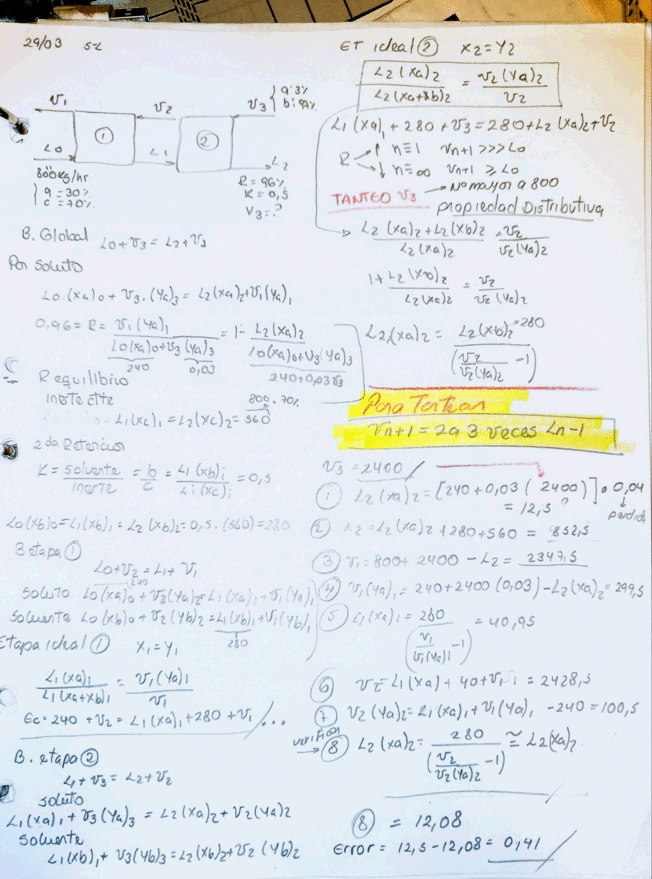 29/03 S2
V1
V2
V3 { a: 3%
b: 97%
①
②
L0
L1
L2
800 kg/hr
{ a = 30%
c = 70%
R = 96%
K = 0,5
V3 = ?
B. Global L0 + V3 = L2 + V3
Por soluto
L0 (xa)0 + V3 (Ya)3 = L2 (xa)2 + V1 (Ya)1
0,96 = R = V1 (Ya)1 / L0(xa)0 + V3(Ya)3 = 1 - L2 (xa)2 / L0(xa)0 + V3(Ya)3
240 0,03 240 + 0,03 V3
R equilibrio
inerte ette 800 . 70%
L1 (xc)1 = L2 (xc)2 = 560
2da Retencion
K = solvente / inerte = b / c = Li (xb)i / Li (xc)i = 0,5
L0 (xb)0 = L1 (xb)1 = L2 (xb)2 = 0,5 . (560) = 280
B etapa ①
L0 + V2 = L1 + V1
240
soluto L0 (xa)0 + V2 (Ya)2 = L1 (xa)1 + V1 (Ya)1
solvente L0 (xb)0 + V2 (Yb)2 = L1 (xb)1 + V1 (Yb)1
280
Etapa ideal ① X1 = Y1
L1 (xa)1 / L1 (xa+xb)1 = V1 (Ya)1 / V1
Ec = 240 + V2 = L1 (xa)1 + 280 + V1 / ...
B. etapa ②
L1 + V3 = L2 + V2
soluto
L1 (xa)1 + V3 (Ya)3 = L2 (xa)2 + V2 (Ya)2
solvente
L1 (xb)1 + V3 (Yb)3 = L2 (xb)2 + V2 (Yb)2
ET ideal ② X2 = Y2
L2 (xa)2 / L2 (xa+xb)2 = V2 (Ya)2 / V2
L1 (xa)1 + 280 + V3 = 280 + L2 (xa)2 + V2
R ↑ n = 1 Vn+1 >>> L0
↓ n = ∞ Vn+1 ≥ L0
TANTEO V3 → No mayor a 800
propiedad Distributiva
L2 (xa)2 + L2 (xb)2 / L2 (xa)2 = V2 / V2 (Ya)2
1 + L2 (xb)2 / L2 (xa)2 = V2 / V2 (Ya)2
L2 (xa)2 = L2 (xb)2 = 280 / ( V2 / V2 (Ya)2 - 1 )
Para Tantear
Vn+1 = 2 a 3 veces Ln-1
V3 = 2400
① L2 (xa)2 = [240 + 0,03 ( 2400 )] • 0,04
= 12,5 perdida
② L2 = L2 (xa)2 + 280 + 560 = 852,5
③ V1 = 800 + 2400 - L2 = 2347,5
④ V1 (Ya)1 = 240 + 2400 (0,03) - L2 (xa)2 = 299,5
⑤ L1 (xa)1 = 280 / ( V1 / V1 (Ya)1 - 1 ) = 40,95
⑥ V2 = L1 (xa) + 40 + V1 = 2428,5
⑦ V2 (Ya)2 = L1 (xa)1 + V1 (Ya)1 - 240 = 100,5
verificar
⑧ L2 (xa)2 = 280 / ( V2 / V2 (Ya)2 - 1 ) ≅ L2 (xa)2
⑧ = 12,08
Error = 12,5 - 12,08 = 0,41